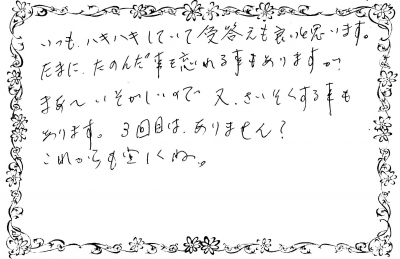 いつも、ハキハキしていて受答えも良いと思います。
たまに、たのんだ事を忘れる事もありますが
まあ〜いそがしいので又、さいそくする事も
あります。3回目は、ありません?
これからも宜しくね。